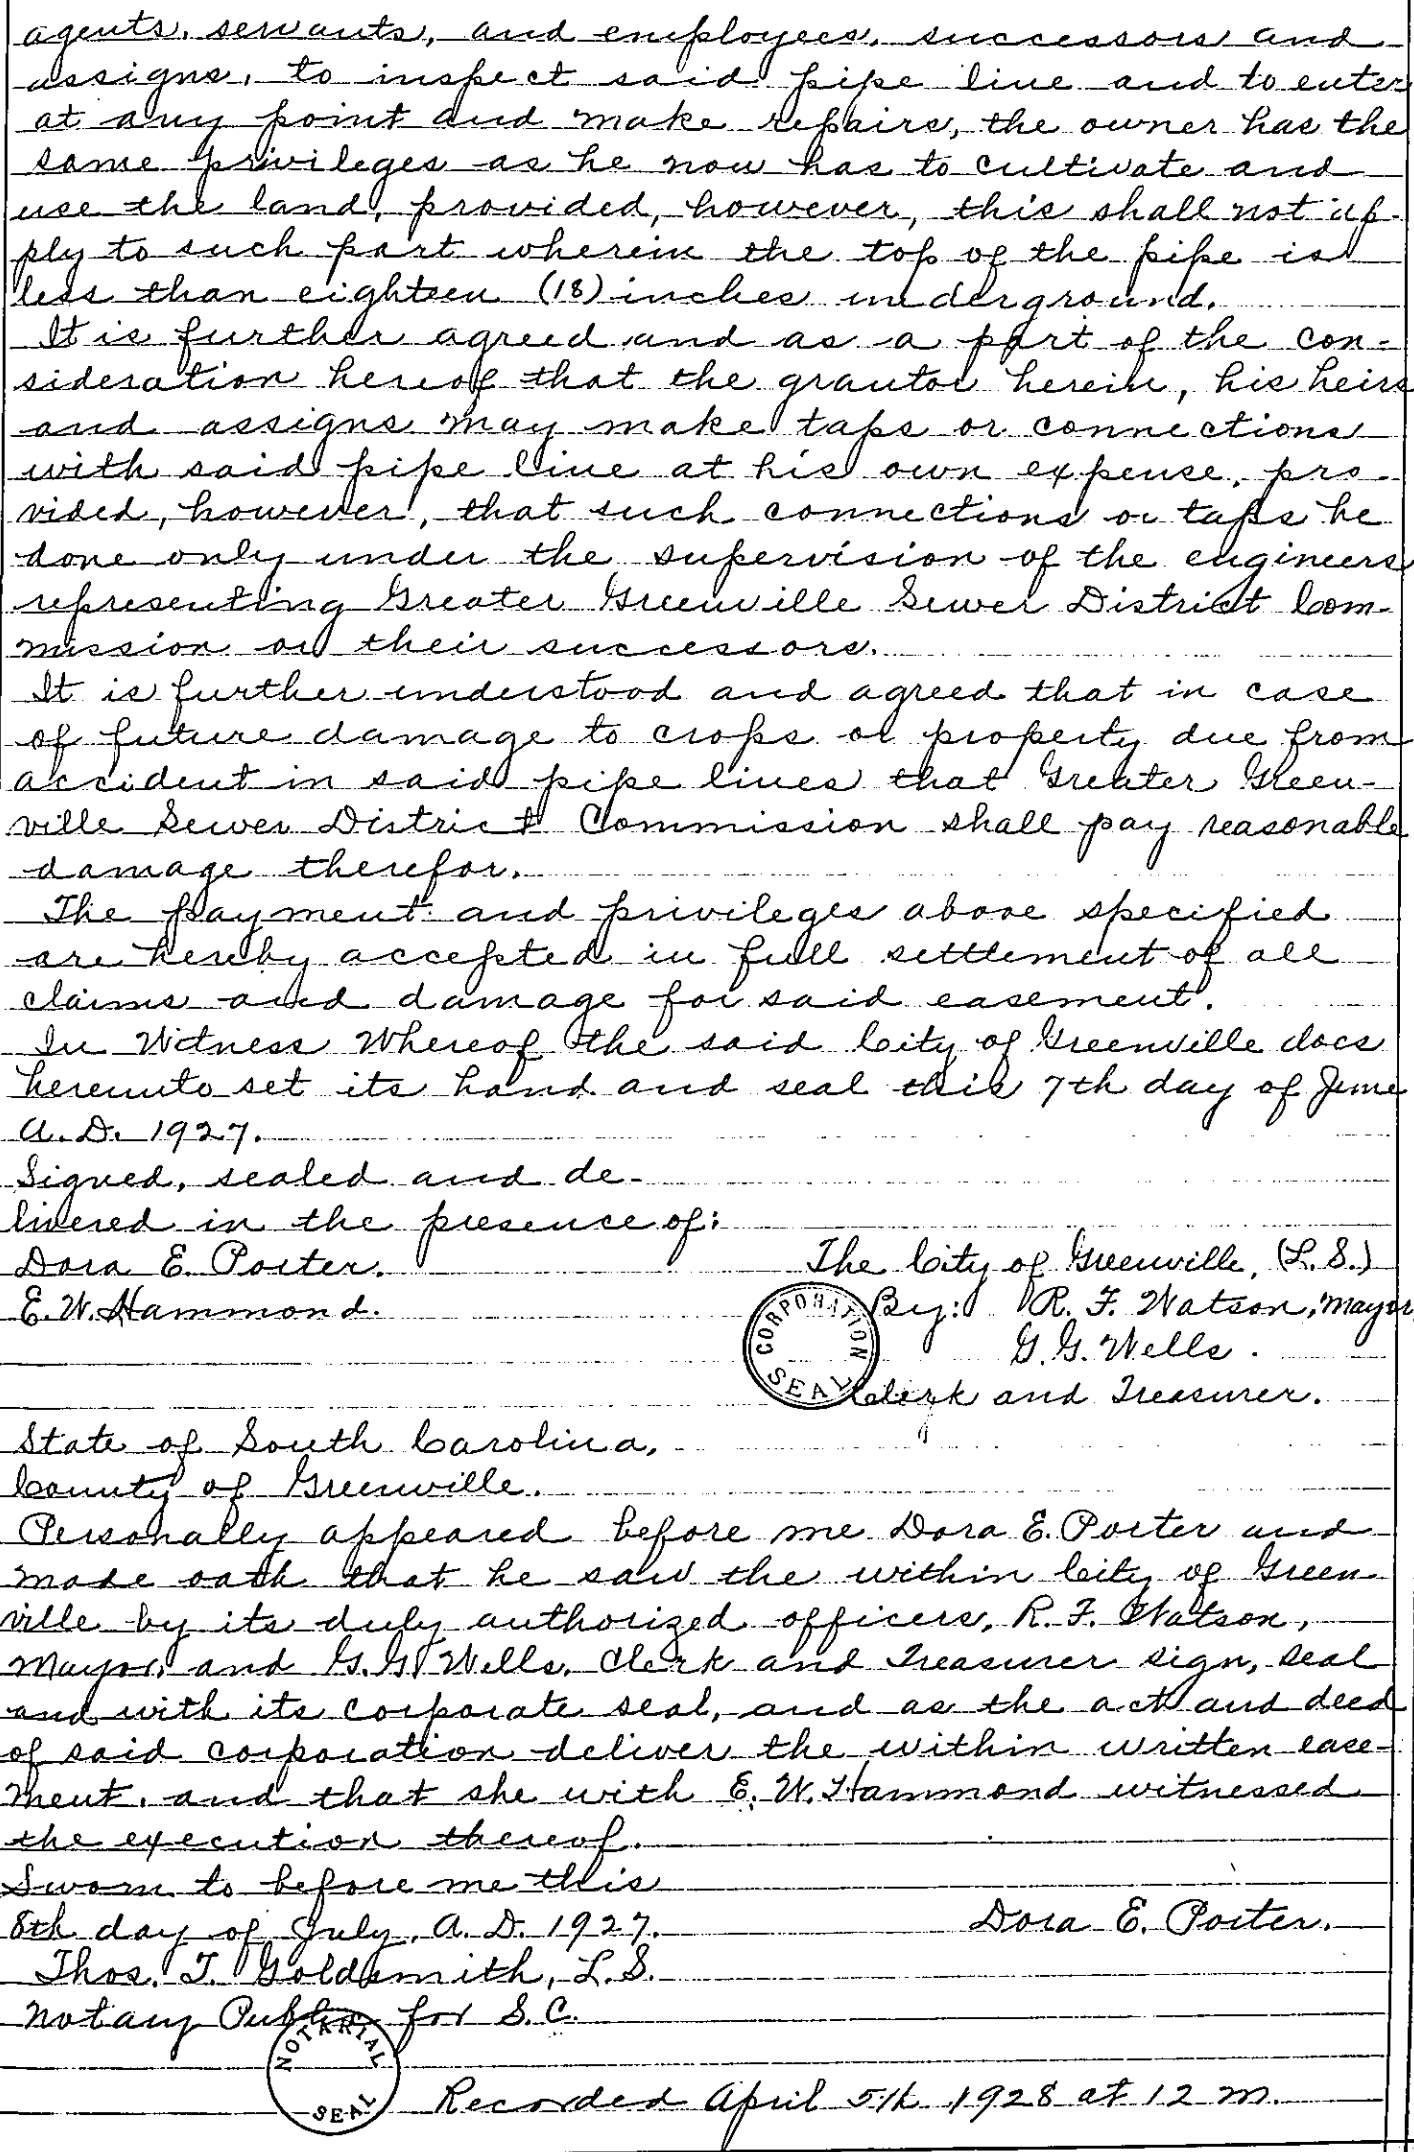 agents, servants, and employees, successors and
assigns, to inspect said pipe line and to enter
at any point and make repairs, the owner has the
same privileges as he now has to cultivate and
use the land, provided, however, this shall not ap-
ply to such part wherein the top of the pipe is
less than eighteen (18) inches underground.
It is further agreed and as a part of the con-
sideration hereof that the grantor herein, his heirs
and assigns may make taps or connections
with said pipe line at his own expense, pro-
vided, however, that such connections or taps be
done only under the supervision of the engineers
representing Greater Greenville Sewer District Com-
mission or their successors.
It is further understood and agreed that in case
of future damage to crops or property due from
accident in said pipe lines that Greater Green-
ville Sewer District Commission shall pay reasonable
damage therefor.
The payment and privileges above specified
are hereby accepted in full settlement of all
claims and damage for said easement.
In Witness Whereof the said City of Greenville does
hereunto set its hand and seal this 7th day of June
A.D. 1927.
Signed, sealed and de-
livered in the presence of:
Dora E. Porter. The City of Greenville, (L.S.)
E.W. Hammond. By: R. F. Watson, Mayor
G.G. Wells.
Clerk and Treasurer.
CORPORATION SEAL
State of South Carolina,
County of Greenville.
Personally appeared before me Dora E. Porter and
made oath that he saw the within City of Green-
ville by its duly authorized officers, R. F. Watson,
Mayor, and G.G. Wells, Clerk and Treasurer sign, seal
and with its corporate seal, and as the act and deed
of said corporation deliver the within written ease-
ment, and that she with E. W. Hammond witnessed
the execution thereof.
Sworn to before me this
8th day of July, A.D. 1927. Dora E. Porter.
Thos. T. Goldsmith, L.S.
Notary Public for S.C.
NOTARIAL SEAL
Recorded April 5th 1928 at 12 M.